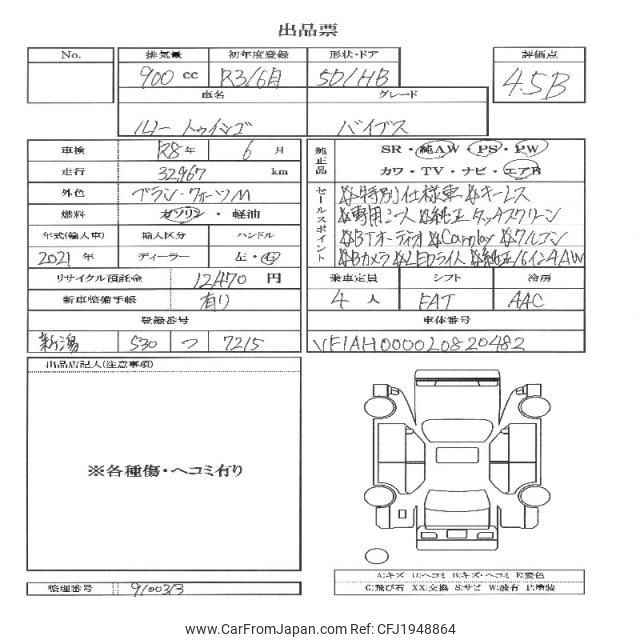 出品票
No. 排気量 初年度登録 形状・ドア 評価点
900 cc R3/6月 5D/HB 4.5B
車名 グレード
ルノー トゥインゴ バイブス
車検 R8年 6月
走行 32,967 km
外色 ブラン・クォーツM
燃料 ガソリン・軽油
年式(輸入車) 輸入区分 ハンドル
2021年 ディーラー 左・右
リサイクル預託金 12470 円
新車整備手帳 有り
登録番号
新潟 530 つ 7215
純正品 SR・純AW・PS・PW
カワ・TV・ナビ・エアB
セールスポイント
☆特別仕様車☆キーレス
☆専用シート☆純正タッチスクリーン
☆BTオーディオ☆Carplay☆クルコン
☆Bカメラ☆LEDライト☆純正16インチAW
乗車定員 シフト 冷房
4人 FAT AAC
車体番号
VF1AH000020820482
出品店記入(注意事項)
※各種傷・ヘコミ有り
A:キズ U:ヘコミ B:キズ・ヘコミ E:変色
G:飛び石 XX:交換 S:サビ W:波有 P:塗装
整理番号 910033
www.CarFromJapan.com - Reference No. CFJ1948864